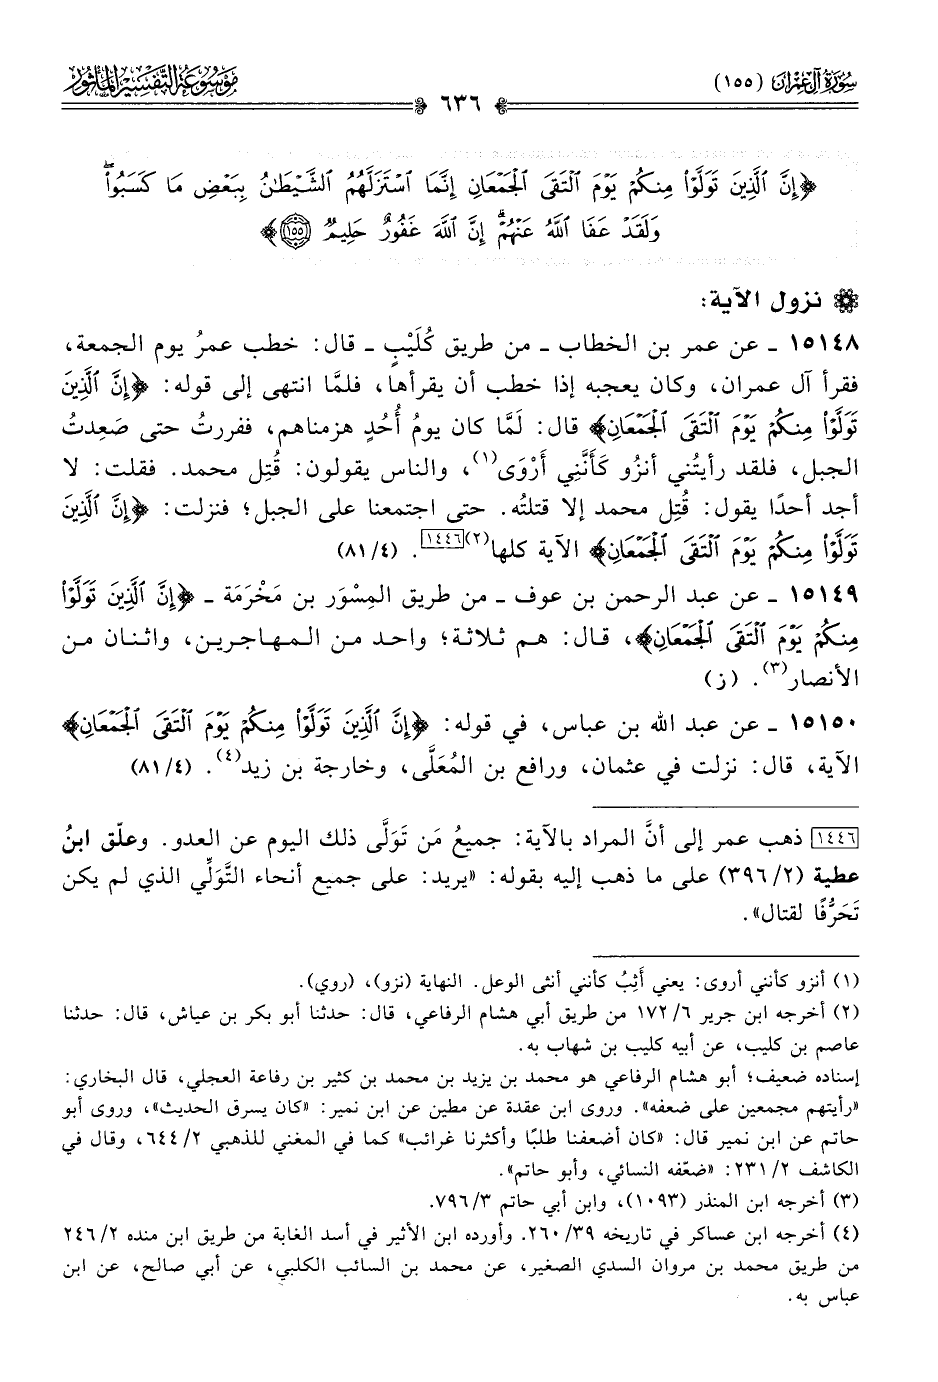 سُورَةُ آلِ عِمْرَان (١٥٥)
٦٣٦
مَوْسُوعَة التَّفْسِير المَأثُور
﴿إِنَّ ٱلَّذِينَ تَوَلَّوْا۟ مِنكُمْ يَوْمَ ٱلْتَقَى ٱلْجَمْعَانِ إِنَّمَا ٱسْتَزَلَّهُمُ ٱلشَّيْطَٰنُ بِبَعْضِ مَا كَسَبُوا۟ۖ
وَلَقَدْ عَفَا ٱللَّهُ عَنْهُمْۗ إِنَّ ٱللَّهَ غَفُورٌ حَلِيمٌ ١٥٥﴾
نزول الآية:
١٥١٤٨ ـ عن عمر بن الخطاب ـ من طريق كُلَيْبٍ ـ قال: خطب عمرُ يوم الجمعة،
فقرأ آل عمران، وكان يعجبه إذا خطب أن يقرأها، فلمَّا انتهى إلى قوله: ﴿إِنَّ ٱلَّذِينَ
تَوَلَّوْا۟ مِنكُمْ يَوْمَ ٱلْتَقَى ٱلْجَمْعَانِ﴾ قال: لَمَّا كان يومُ أُحُدٍ هزمناهم، ففررتُ حتى صَعِدتُ
الجبل، فلقد رأيتُني أنزُو كَأنَّنِي أَرْوَى(١)، والناس يقولون: قُتِل محمد. فقلت: لا
أجد أحدًا يقول: قُتِل محمد إلا قتلتُه. حتى اجتمعنا على الجبل؛ فنزلت: ﴿إِنَّ ٱلَّذِينَ
تَوَلَّوْا۟ مِنكُمْ يَوْمَ ٱلْتَقَى ٱلْجَمْعَانِ﴾ الآية كلها(٢)[١٤٤٦]. (٤/ ٨١)
١٥١٤٩ ـ عن عبد الرحمن بن عوف ـ من طريق المِسْوَر بن مَخْرَمَة ـ ﴿إِنَّ ٱلَّذِينَ تَوَلَّوْا۟
مِنكُمْ يَوْمَ ٱلْتَقَى ٱلْجَمْعَانِ﴾، قال: هم ثلاثة؛ واحد من المهاجرين، واثنان من
الأنصار(٣). (ز)
١٥١٥٠ ـ عن عبد الله بن عباس، في قوله: ﴿إِنَّ ٱلَّذِينَ تَوَلَّوْا۟ مِنكُمْ يَوْمَ ٱلْتَقَى ٱلْجَمْعَانِ﴾
الآية، قال: نزلت في عثمان، ورافع بن المُعَلَّى، وخارجة بن زيد(٤). (٤/ ٨١)
[١٤٤٦] ذهب عمر إلى أنَّ المراد بالآية: جميعُ مَن تَوَلَّى ذلك اليوم عن العدو. وعلّق ابنُ
عطية (٢/ ٣٩٦) على ما ذهب إليه بقوله: «يريد: على جميع أنحاء التَّوَلِّي الذي لم يكن
تَحَرُّفًا لقتال».
(١) أنزو كأنني أروى: يعني أَثِبُ كأنني أنثى الوعل. النهاية (نزو)، (روي).
(٢) أخرجه ابن جرير ٦/ ١٧٢ من طريق أبي هشام الرفاعي، قال: حدثنا أبو بكر بن عياش، قال: حدثنا
عاصم بن كليب، عن أبيه كليب بن شهاب به.
إسناده ضعيف؛ أبو هشام الرفاعي هو محمد بن يزيد بن محمد بن كثير بن رفاعة العجلي، قال البخاري:
«رأيتهم مجمعين على ضعفه». وروى ابن عقدة عن مطين عن ابن نمير: «كان يسرق الحديث»، وروى أبو
حاتم عن ابن نمير قال: «كان أضعفنا طلبًا وأكثرنا غرائب» كما في المغني للذهبي ٢/ ٦٤٤، وقال في
الكاشف ٢/ ٢٣١: «ضعّفه النسائي، وأبو حاتم».
(٣) أخرجه ابن المنذر (١٠٩٣)، وابن أبي حاتم ٣/ ٧٩٦.
(٤) أخرجه ابن عساكر في تاريخه ٣٩/ ٢٦٠. وأورده ابن الأثير في أسد الغابة من طريق ابن منده ٢/ ٢٤٦
من طريق محمد بن مروان السدي الصغير، عن محمد بن السائب الكلبي، عن أبي صالح، عن ابن
عباس به.